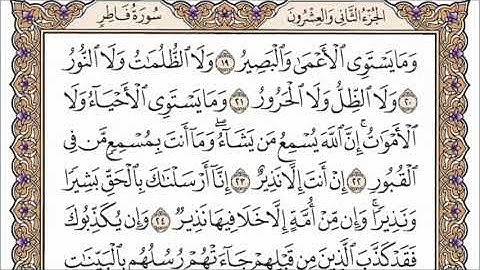 سُورَةُ فَاطِرٍ الجُزْءُ الثَّانِي وَالعِشْرُونَ
وَمَا يَسْتَوِي الْأَعْمَىٰ وَالْبَصِيرُ ١٩ وَلَا الظُّلُمَاتُ وَلَا النُّورُ
٢٠ وَلَا الظِّلُّ وَلَا الْحَرُورُ ٢١ وَمَا يَسْتَوِي الْأَحْيَاءُ وَلَا
الْأَمْوَاتُ ۚ إِنَّ اللَّهَ يُسْمِعُ مَن يَشَاءُ ۖ وَمَا أَنتَ بِمُسْمِعٍ مَّن فِي
الْقُبُورِ ٢٢ إِنْ أَنتَ إِلَّا نَذِيرٌ ٢٣ إِنَّا أَرْسَلْنَاكَ بِالْحَقِّ بَشِيرًا
وَنَذِيرًا ۚ وَإِن مِّنْ أُمَّةٍ إِلَّا خَلَا فِيهَا نَذِيرٌ ٢٤ وَإِن يُكَذِّبُوكَ
فَقَدْ كَذَّبَ الَّذِينَ مِن قَبْلِهِمْ جَاءَتْهُمْ رُسُلُهُم بِالْبَيِّنَاتِ